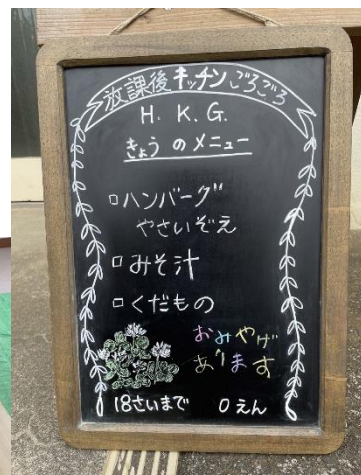 放課後キッチンごろごろ
H. K. G.
きょうのメニュー
▫ハンバーグ
やさいぞえ
▫みそ汁
▫くだもの
おみやげ
あります
18さいまで 0えん